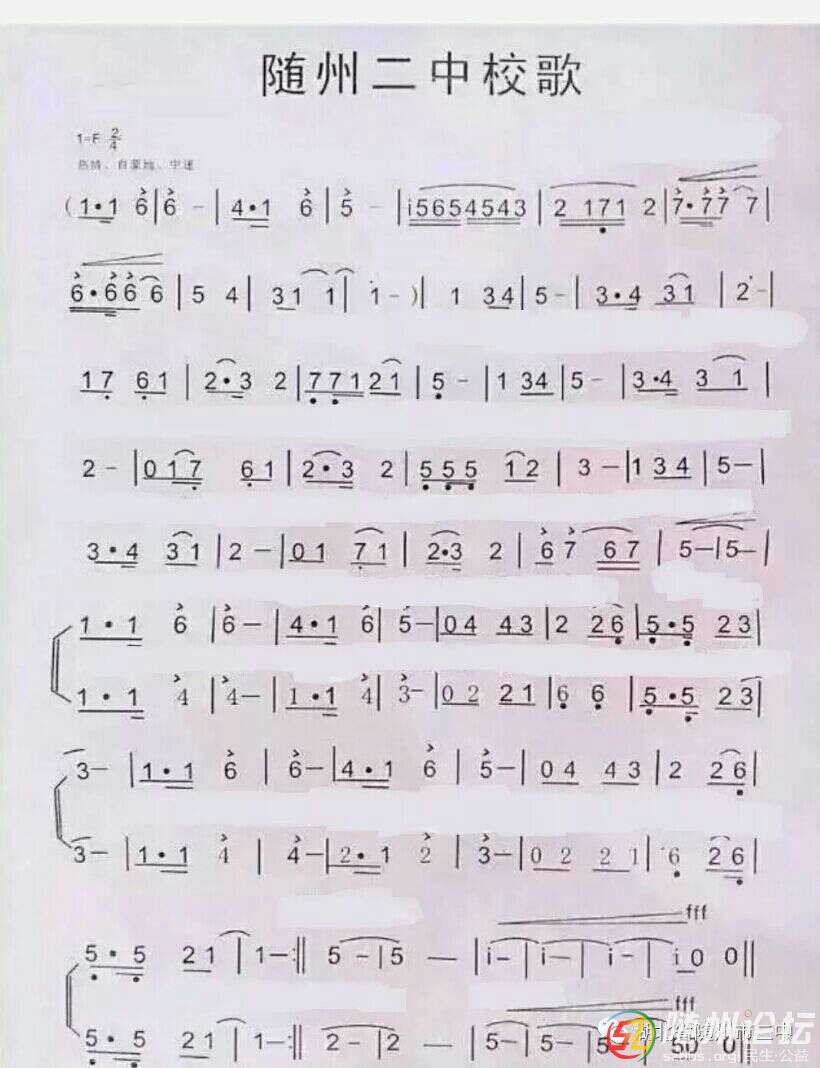 随州二中校歌
1=F 2/4
热情、自豪地、中速
(1•1 6|6 - |4•1 6|5 - |i5654543|2 171 2|7•77 7|
6•66 6|5 4|31 1|1 -)|1 34|5-|3•4 31|2-|
17 61|2•3 2|77121|5-|134|5-|3•4 3 1|
2-|017 61|2•3 2|555 12|3-|134|5-|
3•4 31|2-|01 71|2•3 2|67 67|5-|5-|
1•1 6|6-|4•1 6|5-|04 43|2 26|5•5 23|
1•1 4|4-|1•1 4|3-|02 21|6 6|5•5 23|
3-|1•1 6|6-|4•1 6|5-|04 43|2 26|
3-|1•1 4|4-|2•1 2|3-|02 21|6 26|
fff
5•5 21|1-:||5-|5 —|i-|i-|i-|i0 0||
fff
5•5 21|1-:||2-|2 —|5-|5-|5-|50 0||
随州论坛
szbbs.org|民生·公益